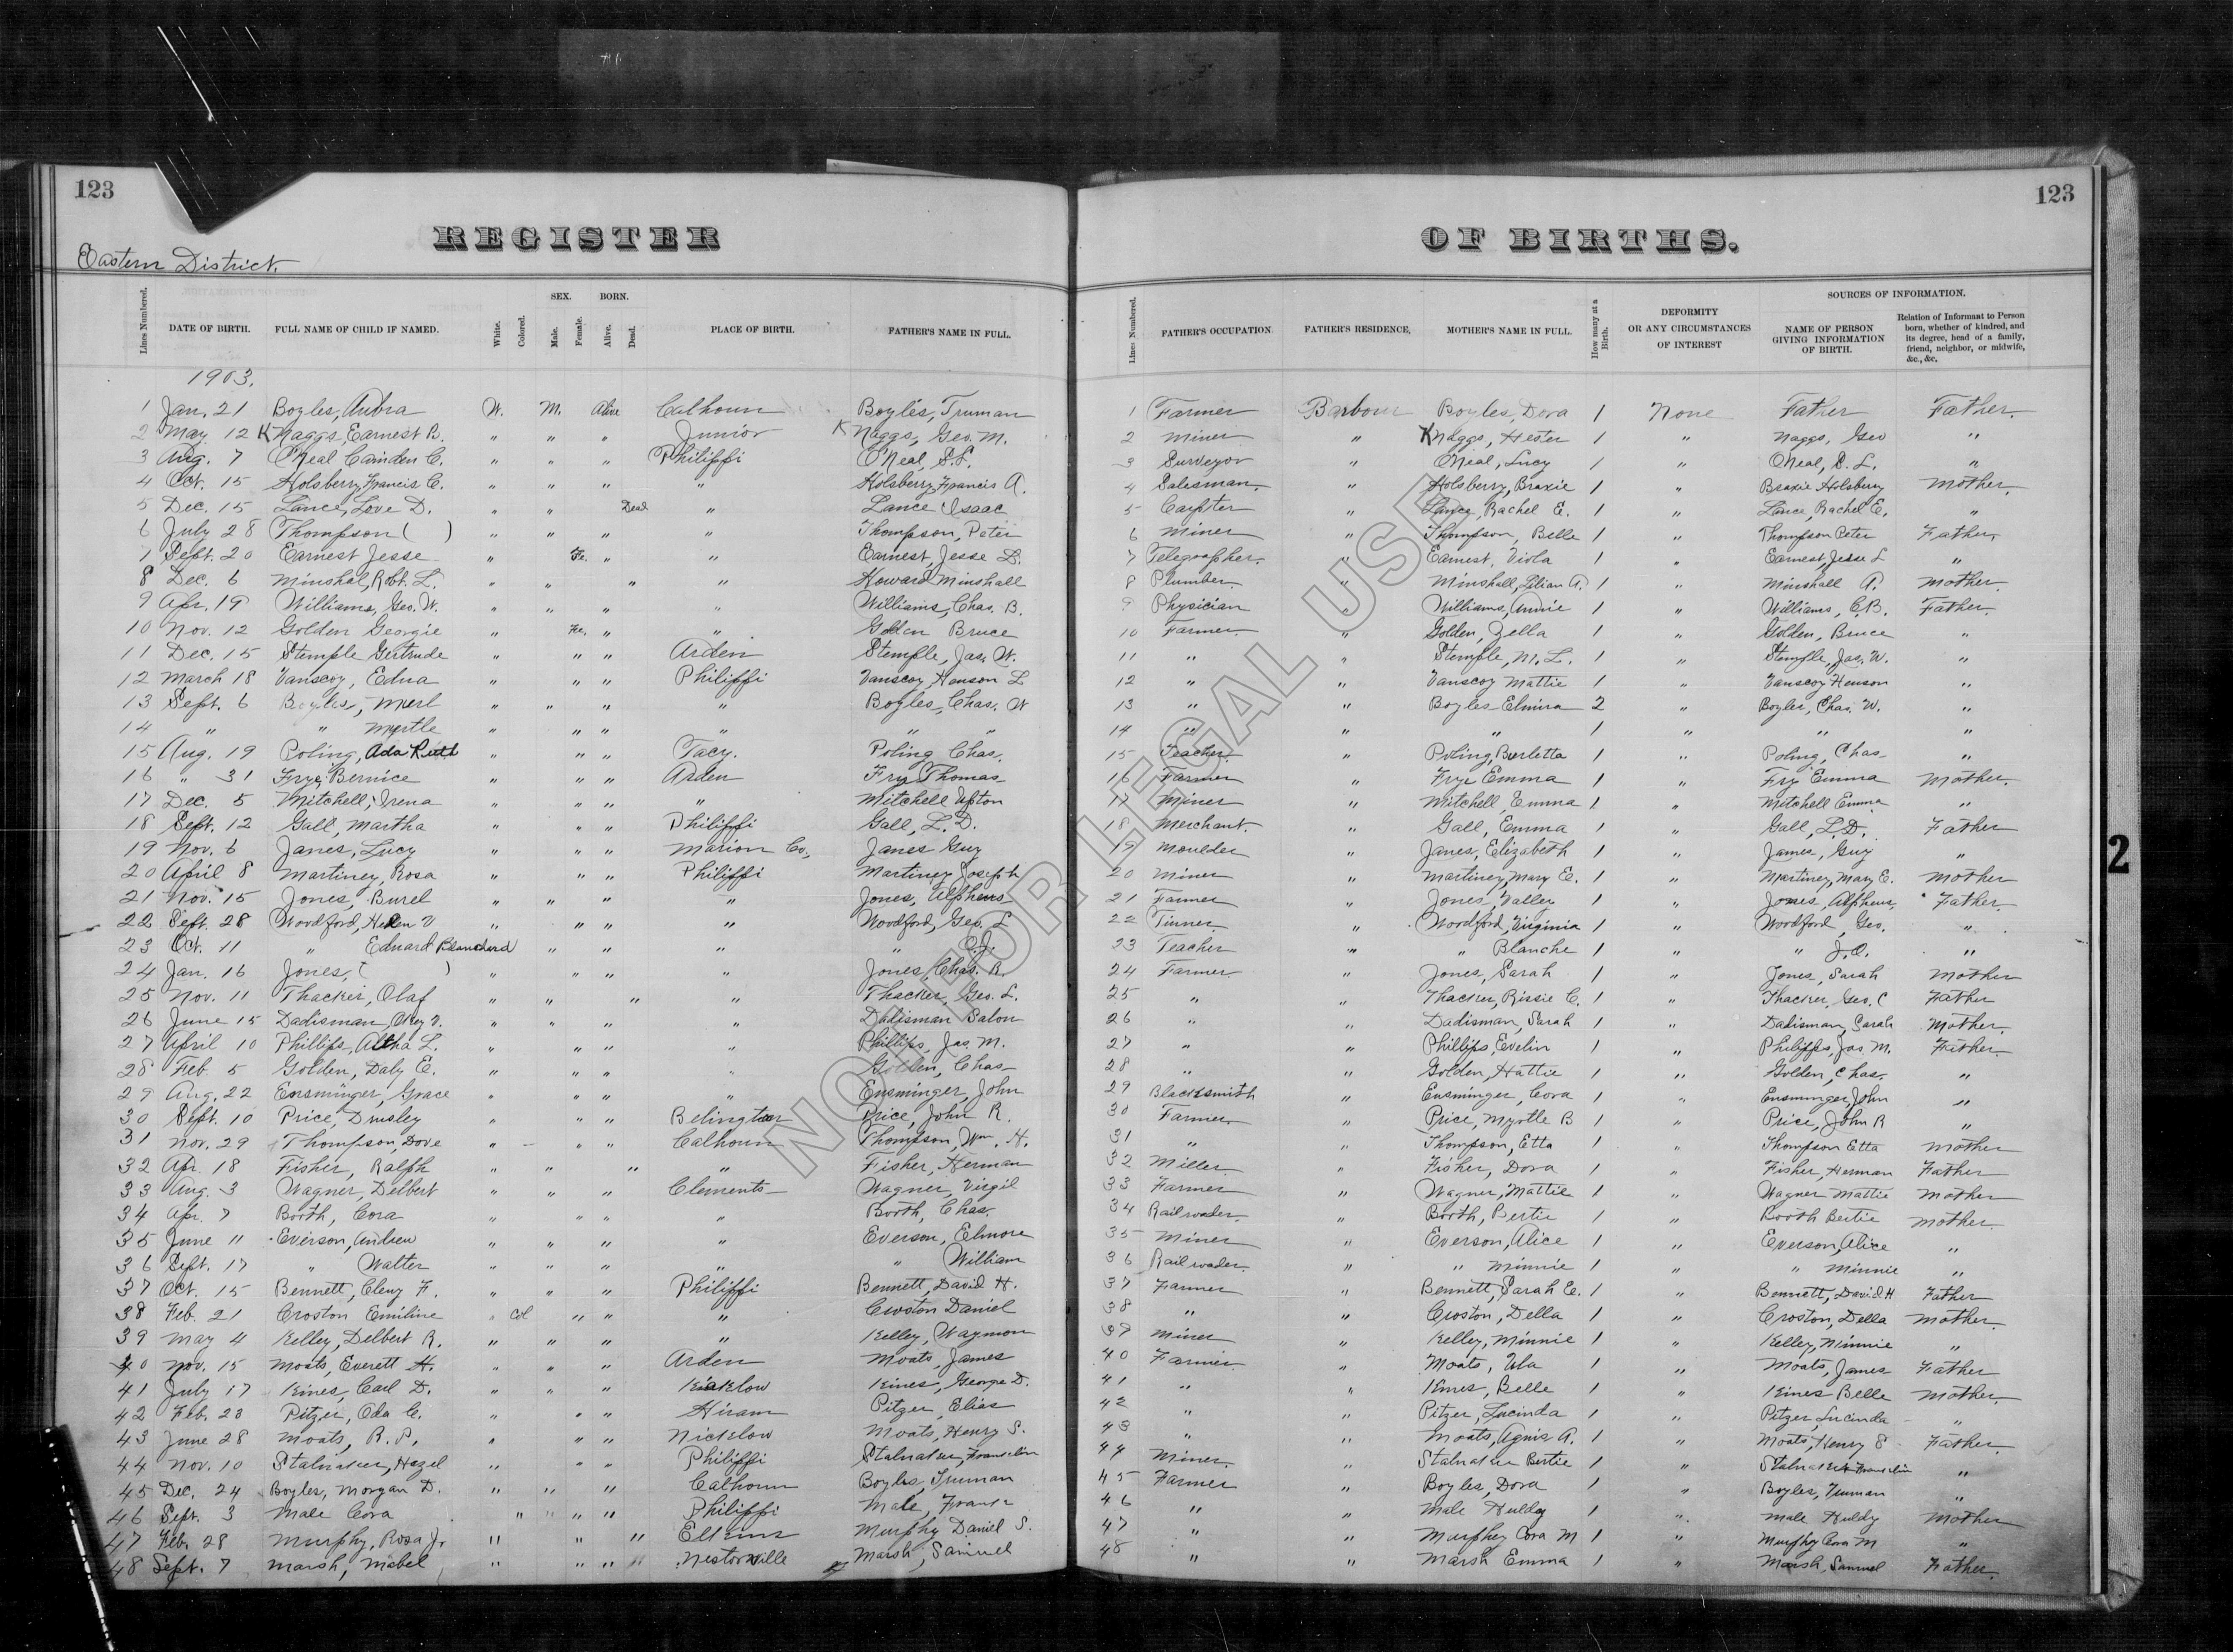 123
REGISTER
Eastern District.
Lines Numbered. DATE OF BIRTH. FULL NAME OF CHILD IF NAMED. White. Colored. SEX. Male. Female. BORN. Alive. Dead. PLACE OF BIRTH. FATHER'S NAME IN FULL.
1903.
1 Jan. 21 Boyles, Aubra W. M. Alive Calhoun Boyles, Truman
2 May 12 KNaggs, Earnest B. " " " Junior KNaggs, Geo. M.
3 Aug. 7 O'Neal Camden C. " " " Philippi O'Neal, S.L.
4 Oct. 15 Holsberry, Francis C. " " " " Holsberry, Francis A.
5 Dec. 15 Lance, Love D. " " Dead " Lance Isaac
6 July 28 Thompson ( ) " " " " Thompson, Peter
7 Sept. 20 Earnest Jesse " Fe. " " Earnest, Jesse L.
8 Dec. 6 Minshal, Robt. L. " " " " Howard Minshall
9 Apr. 19 Williams, Geo. W. " " " " Williams, Chas. B.
10 Nov. 12 Golden Georgie " Fe. " " Golden Bruce
11 Dec. 15 Stemple Gertrude " " " Arden Stemple, Jas. W.
12 March 18 Vanscoy, Edna " " " Philippi Vanscoy, Henson L
13 Sept. 6 Boyles, Merl " " " " Boyles, Chas. W
14 " " Myrtle " " " " " "
15 Aug. 19 Poling, Ada Ruth " " " Tacy. Poling Chas.
16 " 31 Frye, Bernice " " " Arden Fry Thomas
17 Dec. 5 Mitchell, Irena " " " " Mitchell Upton
18 Sept. 12 Gall, Martha " " " Philippi Gall, L. D.
19 Nov. 6 Janes, Lucy " " " Marion Co., Janes Guy
20 April 8 Martiney, Rosa " " " Philippi Martiney Joseph
21 Nov. 15 Jones, Burel " " " " Jones, Alpheus
22 Sept. 28 Woodford, Helen V " " " " Woodford, Geo. L
23 Oct. 11 " Edward Blanchard " " " "
24 Jan. 16 Jones, ( ) " " " " Jones, Chas. R.
25 Nov. 11 Thacker, Olaf " " " " Thacker, Geo. L.
26 June 15 Dadisman, Okey V. " " " " Dadisman Salon
27 April 10 Phillips, Altha L. " " " " Phillips, Jas. M.
28 Feb. 5 Golden, Daly E. " " " " Golden, Chas
29 Aug. 22 Ensminger, Grace " " " " Ensminger, John
30 Sept. 10 Price, Drusley " " " Belington Price, John R.
31 Nov. 29 Thompson, Dove " " " Calhoun Thompson, Wm. H.
32 Apr. 18 Fisher, Ralph " " " " Fisher, Herman
33 Aug. 3 Wagner, Delbert " " " Clements Wagner, Virgil
34 Apr. 7 Booth, Cora " " " " Booth, Chas.
35 June 11 Everson, Andrew " " " " Everson, Elmore
36 Sept. 17 " Walter " " " " " William
37 Oct. 15 Bennett, Cleny F. " " " Philippi Bennett, David H.
38 Feb. 21 Croston Emiline " Col " " " Croston Daniel
39 May 4 Kelley, Delbert R. " " " " Kelley, Waymon
40 Nov. 15 Moats, Everett H. " " " Arden Moats, James
41 July 17 Kines, Carl D. " " " Kines, George D.
42 Feb. 23 Pitzer, Oda C. " " " Hiram Pitzer, Elias
43 June 28 Moats, R. P. " " " Nicklow Moats, Henry S.
44 Nov. 10 Stalnaker, Hazel " " " Philippi Stalnaker, Franklin
45 Dec. 24 Boyles, Morgan D. " " " Calhoun Boyles, Truman
46 Sept. 3 Male Cora " " " " Philippi Male, Frank
47 Feb. 28 Murphy, Rosa J. " " " Murphy Daniel S.
48 Sept. 7 Marsh, Mabel " " " " Nestorville Marsh, Samuel
123
OF BIRTHS.
Lines Numbered. FATHER'S OCCUPATION. FATHER'S RESIDENCE, MOTHER'S NAME IN FULL. How many at a Birth. DEFORMITY OR ANY CIRCUMSTANCES OF INTEREST SOURCES OF INFORMATION. NAME OF PERSON GIVING INFORMATION OF BIRTH. Relation of Informant to Person born, whether of kindred, and its degree, head of a family, friend, neighbor, or midwife, &c., &c.
1 Farmer Barbour Boyles, Dora 1 None Father Father.
2 Miner " KNaggs, Hester 1 " Naggs, Geo "
3 Surveyor " O'Neal, Lucy 1 " O'Neal, S. L. "
4 Salesman. " Holsberry, Braxie 1 " Braxie Holsberry Mother.
5 Carpter " Lance, Rachel E. 1 " Lance, Rachel E. "
6 Miner " Thompson, Belle 1 " Thompson Peter Father.
7 Telegrapher. " Earnest, Viola 1 " Earnest, Jesse L "
8 Plumber. " Minshall, Lilian A. 1 " Minshall A. Mother.
9 Physician " Williams, Annie 1 " Williams, C.B. Father.
10 Farmer. " Golden, Zella 1 " Golden, Bruce "
11 " " Stemple, M. L. 1 " Stemple, Jas. W. "
12 " " Vanscoy Mattie 1 " Vanscoy Henson "
13 " " Boyles Elmira 2 " Boyles, Chas. W. "
14 " " " 1 " " "
15 Teacher. " Poling, Burletta 1 " Poling, Chas "
16 Farmer " Frye Emma 1 " Fry Emma Mother.
17 Miner " Mitchell, Emma 1 " Mitchell Emma "
18 Merchant. " Gall, Emma 1 " Gall, L.D. Father
19 Moulder " Janes, Elizabeth 1 " James, Guy "
20 Miner " Martiney, Mary E. 1 " Martiney, Mary E. Mother
21 Farmer " Jones, Valley 1 " Jones, Alpheus, Father.
22 Tinner " Woodford, Virginia 1 " Woodford, Geo. "
23 Teacher " " Blanche 1 " " "
24 Farmer " Jones, Sarah 1 " Jones, Sarah Mother
25 " " Thacker, Rissie C. 1 " Thacker, Geo. C Father
26 " " Dadisman, Sarah 1 " Dadisman, Sarah Mother.
27 " " Phillips, Evelin 1 " Philipps, Jas. M. Father.
28 " " Golden, Hattie 1 " Golden, Chas. "
29 Blacksmith " Ensminger, Cora 1 " Ensminger, John "
30 Farmer. " Price, Myrtle B 1 " Price, John R "
31 " " Thompson, Etta 1 " Thompson Etta Mother
32 Miller " Fisher, Dora 1 " Fisher, Herman Father
33 Farmer " Wagner, Mattie 1 " Wagner Mattie Mother
34 Railroader. " Booth, Bertie 1 " Booth Bertie Mother.
35 Miner " Everson, Alice 1 " Everson, Alice "
36 Railroader. " " Minnie 1 " " Minnie "
37 Farmer " Bennett, Sarah E. 1 " Bennett, David H Father
38 " " Croston, Della 1 " Croston, Della Mother.
39 Miner " Kelley, Minnie 1 " Kelley, Minnie "
40 Farmer " Moats, Ula 1 " Moats, James Father
41 " " Kines, Belle 1 " Kines Belle Mother.
42 " " Pitzer, Lucinda 1 " Pitzer Lucinda "
43 " " Moats, Agnis A. 1 " Moats, Henry S Father.
44 Miner " Stalnaker Bertie 1 " Stalnaker Franklin "
45 Farmer " Boyles, Dora 1 " Boyles, Truman "
46 " " Male Huldy 1 " Male Huldy Mother
47 " " Murphey Cora M 1 " Murphey Cora M "
48 " " Marsh Emma 1 " Marsh, Samuel Father.
2
NOT FOR LEGAL USE